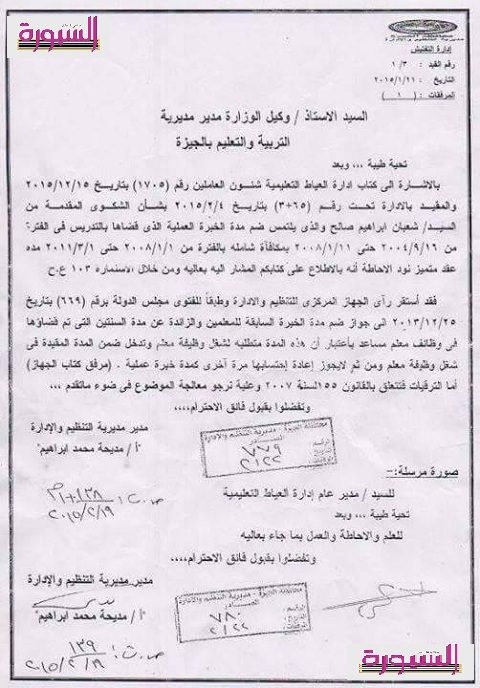 السبورة
مديرية التنظيم والإدارة
إدارة التفتيش
رقم القيد : ١/٣
التاريخ : ٢٠١٥/١/٢١
المرفقات : ( ١ )
السيد الاستاذ / وكيل الوزارة مدير مديرية
التربية والتعليم بالجيزة
تحية طيبة ،،، وبعد
بالاشارة الى كتاب ادارة العياط التعليمية شئون العاملين رقم (١٧٠٥) بتاريخ ٢٠١٥/١٢/١٥
والمقيد بالادارة تحت رقم (٦٥+٣) بتاريخ ٢٠١٥/٢/٤ بشأن الشكوى المقدمة من
السيد/ شعبان ابراهيم صالح والذى يلتمس ضم مدة الخبرة العملية الذى قضاها بالتدريس فى الفترة
من ٢٠٠٤/٩/١٦ حتى ٢٠٠٨/١/١١ بمكافأة شامله بالفترة من ٢٠٠٨/١/١ حتى ٢٠١١/٣/١ مده
عقد متميز نود الاحاطة أنه بالاطلاع على كتابكم المشار اليه بعاليه ومن خلال الاستماره ١٠٣ ع.ح
فقد أستقر رأى الجهاز المركزى للتنظيم والادارة وطبقاً للفتوى مجلس الدولة برقم (٦٦٩) بتاريخ
٢٠١٣/١٢/٢٥ الى جواز ضم مدة الخبرة السابقة للمعلمين والزائدة عن مدة السنتين التى تم قضاؤها
فى وظائف معلم مساعد بأعتبار أن هذه المدة متطلبه لشغل وظيفة معلم وتدخل ضمن المدة المقيدة فى
شغل وظيفة معلم ومن ثم لايجوز إعادة إحتسابها مرة أخرى كمدة خبرة عملية . (مرفق كتاب الجهاز)
أما الترقيات فتتعلق بالقانون ١٥٥ لسنة ٢٠٠٧ وعلية نرجو معالجة الموضوع فى ضوء ماتقدم ،،،
وتفضلوا بقبول فائق الاحترام،،،،
مدير مديرية التنظيم والإدارة
"أ / مديحة محمد ابراهيم"
محافظة الجيزة - مديرية التنظيم والادارة
الصادر
٧٧٩
٢/٢٢
ص.ت : ١٣٨
٢٠١٥/٢/١٩
صورة مرسلة:-
للسيد / مدير عام إدارة العياط التعليمية
تحية طيبة ،،، وبعد
للعلم والاحاطة والعمل بما جاء بعاليه
وتفضلوا بقبول فائق الاحترام،،،
مدير مديرية التنظيم والإدارة
أ / مديحة محمد ابراهيم"
محافظة الجيزة - مديرية التنظيم والادارة
الصادر
٧٨٠
٢/٢٢
ص.ت : ١٣٩
٢٠١٥/٢/١٩
السبورة